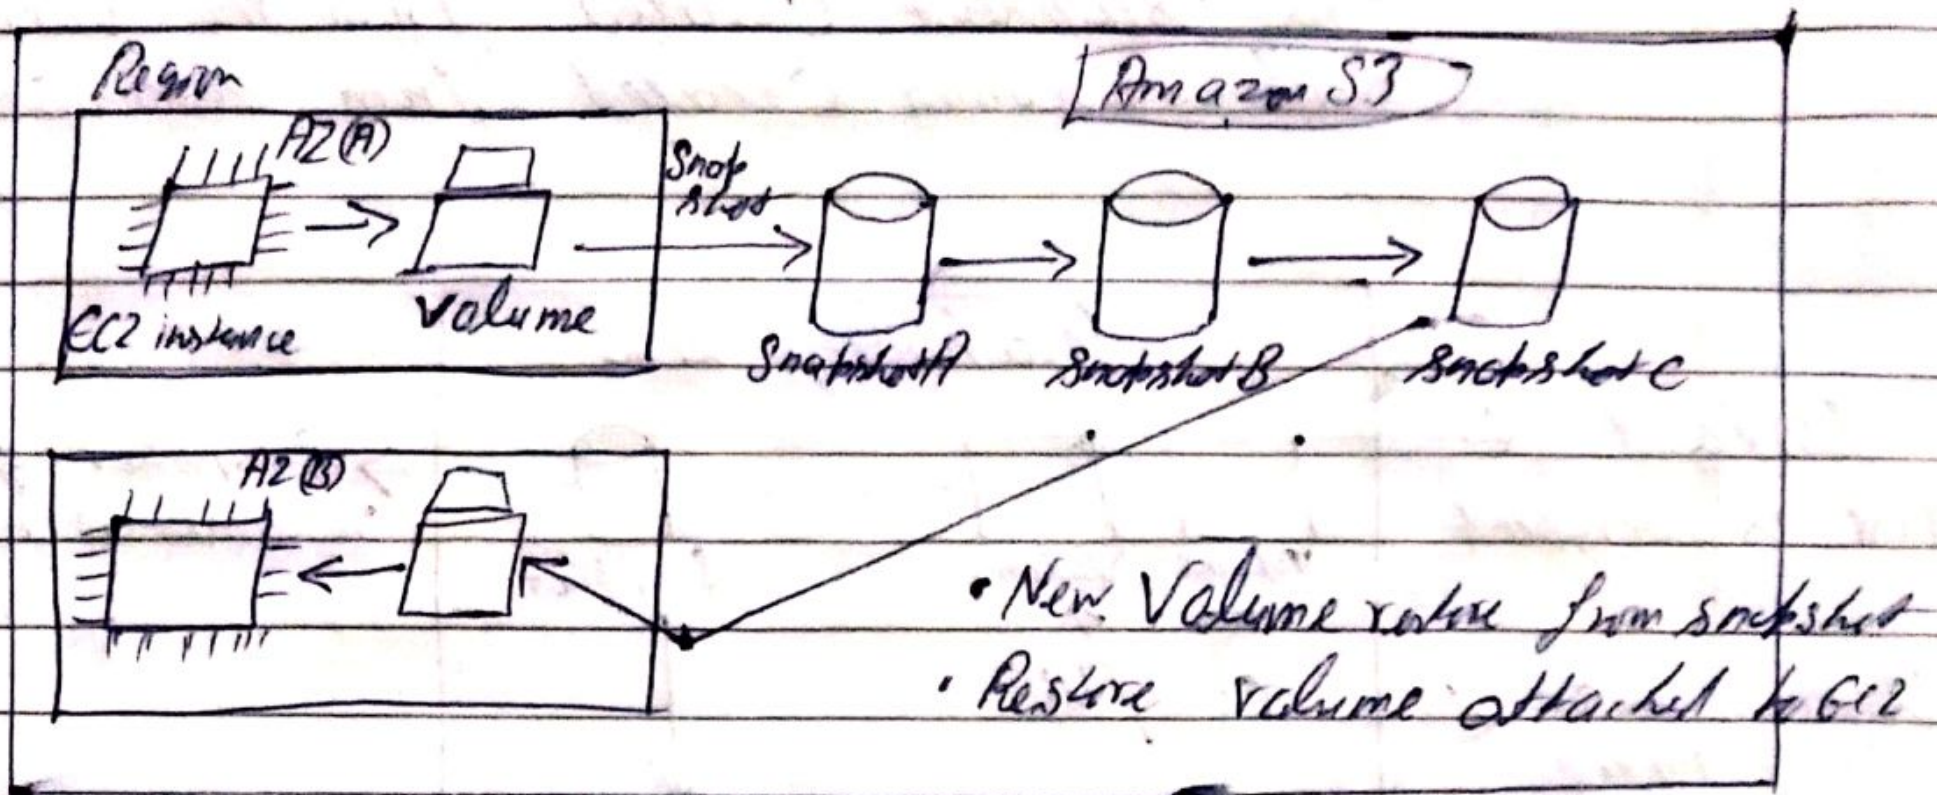 Region
Amazon S3
AZ(A)
Snap
shot
EC2 instance
Volume
Snapshot A
snapshot B
snapshot C
AZ(B)
• New Volume restore from snapshot
• Restore volume attached to EC2